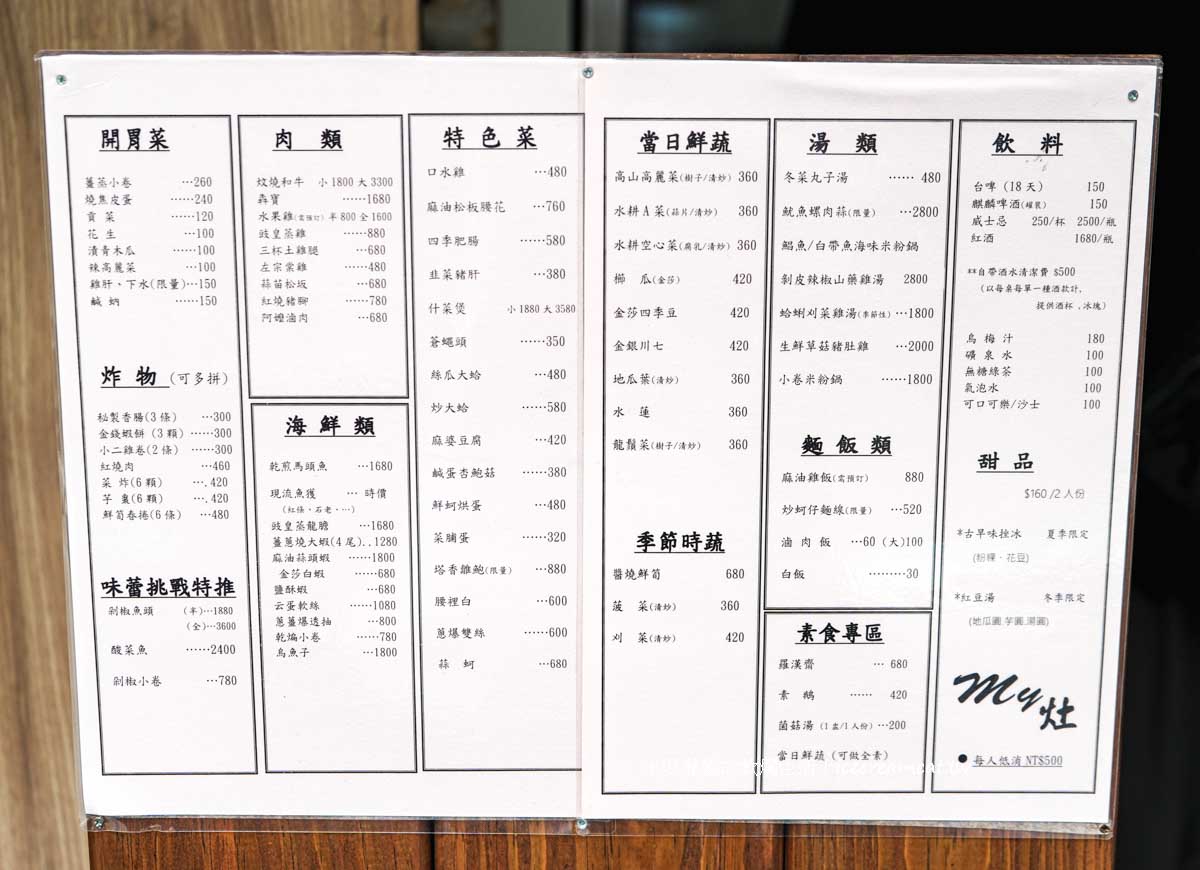 開胃菜
薑蒸小卷 …260
燒焦皮蛋 ……240
貢菜 ……120
花生 …100
漬青木瓜 ……100
辣高麗菜 …100
雞肝、下水(限量)…150
鹹蚋 ……150
炸物 (可多拼)
秘製香腸(3條) …300
金錢蝦餅(3顆) ……300
小二雞卷(2條) ……300
紅燒肉 …460
菜炸(6顆) ….420
芋棗(6顆) ….420
鮮筍春捲(6條) …480
味蕾挑戰特推
剁椒魚頭 (半)…1880
(全)…3600
酸菜魚 ……2400
剁椒小卷 …780
肉類
炆燒和牛 小1800大3300
犇寶 ……1680
水果雞(需預訂)半800全1600
豉皇蒸雞 ……880
三杯土雞腿 …680
左宗棠雞 ……480
蒜苗松坂 …680
紅燒豬腳 ……780
阿嬤滷肉 …680
海鮮類
乾煎馬頭魚 …1680
現流魚獲 … 時價
(紅條、石老、…)
豉皇蒸龍膽 …1680
薑蔥燒大蝦(4尾)..1280
麻油蒜頭蝦 ……1800
金莎白蝦 ……680
鹽酥蝦 …680
云蛋軟絲 ……1080
蔥薑爆透抽 …800
乾煸小卷 ……780
烏魚子 …1800
特色菜
口水雞 …480
麻油松板腰花 …760
四季肥腸 ……580
韭菜豬肝 …380
什菜煲 小1880大3580
蒼蠅頭 ……350
絲瓜大蛤 …480
炒大蛤 ……580
麻婆豆腐 …420
鹹蛋杏鮑菇 ……380
鮮蚵烘蛋 …480
菜脯蛋 ……320
塔香雛鮑(限量) …880
腰裡白 …600
蔥爆雙絲 ……600
蒜蚵 …680
當日鮮蔬
高山高麗菜(樹子/清炒) 360
水耕A菜(蒜片/清炒) 360
水耕空心菜(腐乳/清炒) 360
櫛瓜(金莎) 420
金莎四季豆 420
金銀川七 420
地瓜葉(清炒) 360
水蓮 360
龍鬚菜(樹子/清炒) 360
季節時蔬
醬燒鮮筍 680
菠菜(清炒) 360
刈菜(清炒) 420
湯類
冬菜丸子湯 …… 480
魷魚螺肉蒜(限量) …2800
鯧魚/白帶魚海味米粉鍋
剝皮辣椒山藥雞湯 2800
蛤蜊刈菜雞湯(季節性) …1800
生鮮草菇豬肚雞 …2000
小卷米粉鍋 ……1800
麵飯類
麻油雞飯(需預訂) 880
炒蚵仔麵線(限量) …520
滷肉飯 …60 (大)100
白飯 ………30
素食專區
羅漢齋 … 680
素鵝 …… 420
菌菇湯 (1盅/1人份) …200
當日鮮蔬 (可做全素)
飲料
台啤 (18天) 150
麒麟啤酒(罐裝) 150
威士忌 250/杯 2500/瓶
紅酒 1680/瓶
**自帶酒水清潔費 $500
(以每桌每單一種酒款計,
提供酒杯、冰塊)
烏梅汁 180
礦泉水 100
無糖綠茶 100
氣泡水 100
可口可樂/沙士 100
甜品
$160/2人份
*古早味挫冰 夏季限定
(粉粿、花豆)
*紅豆湯 冬季限定
(地瓜圓.芋圓.湯圓)
My灶
● 每人低消 NT$500